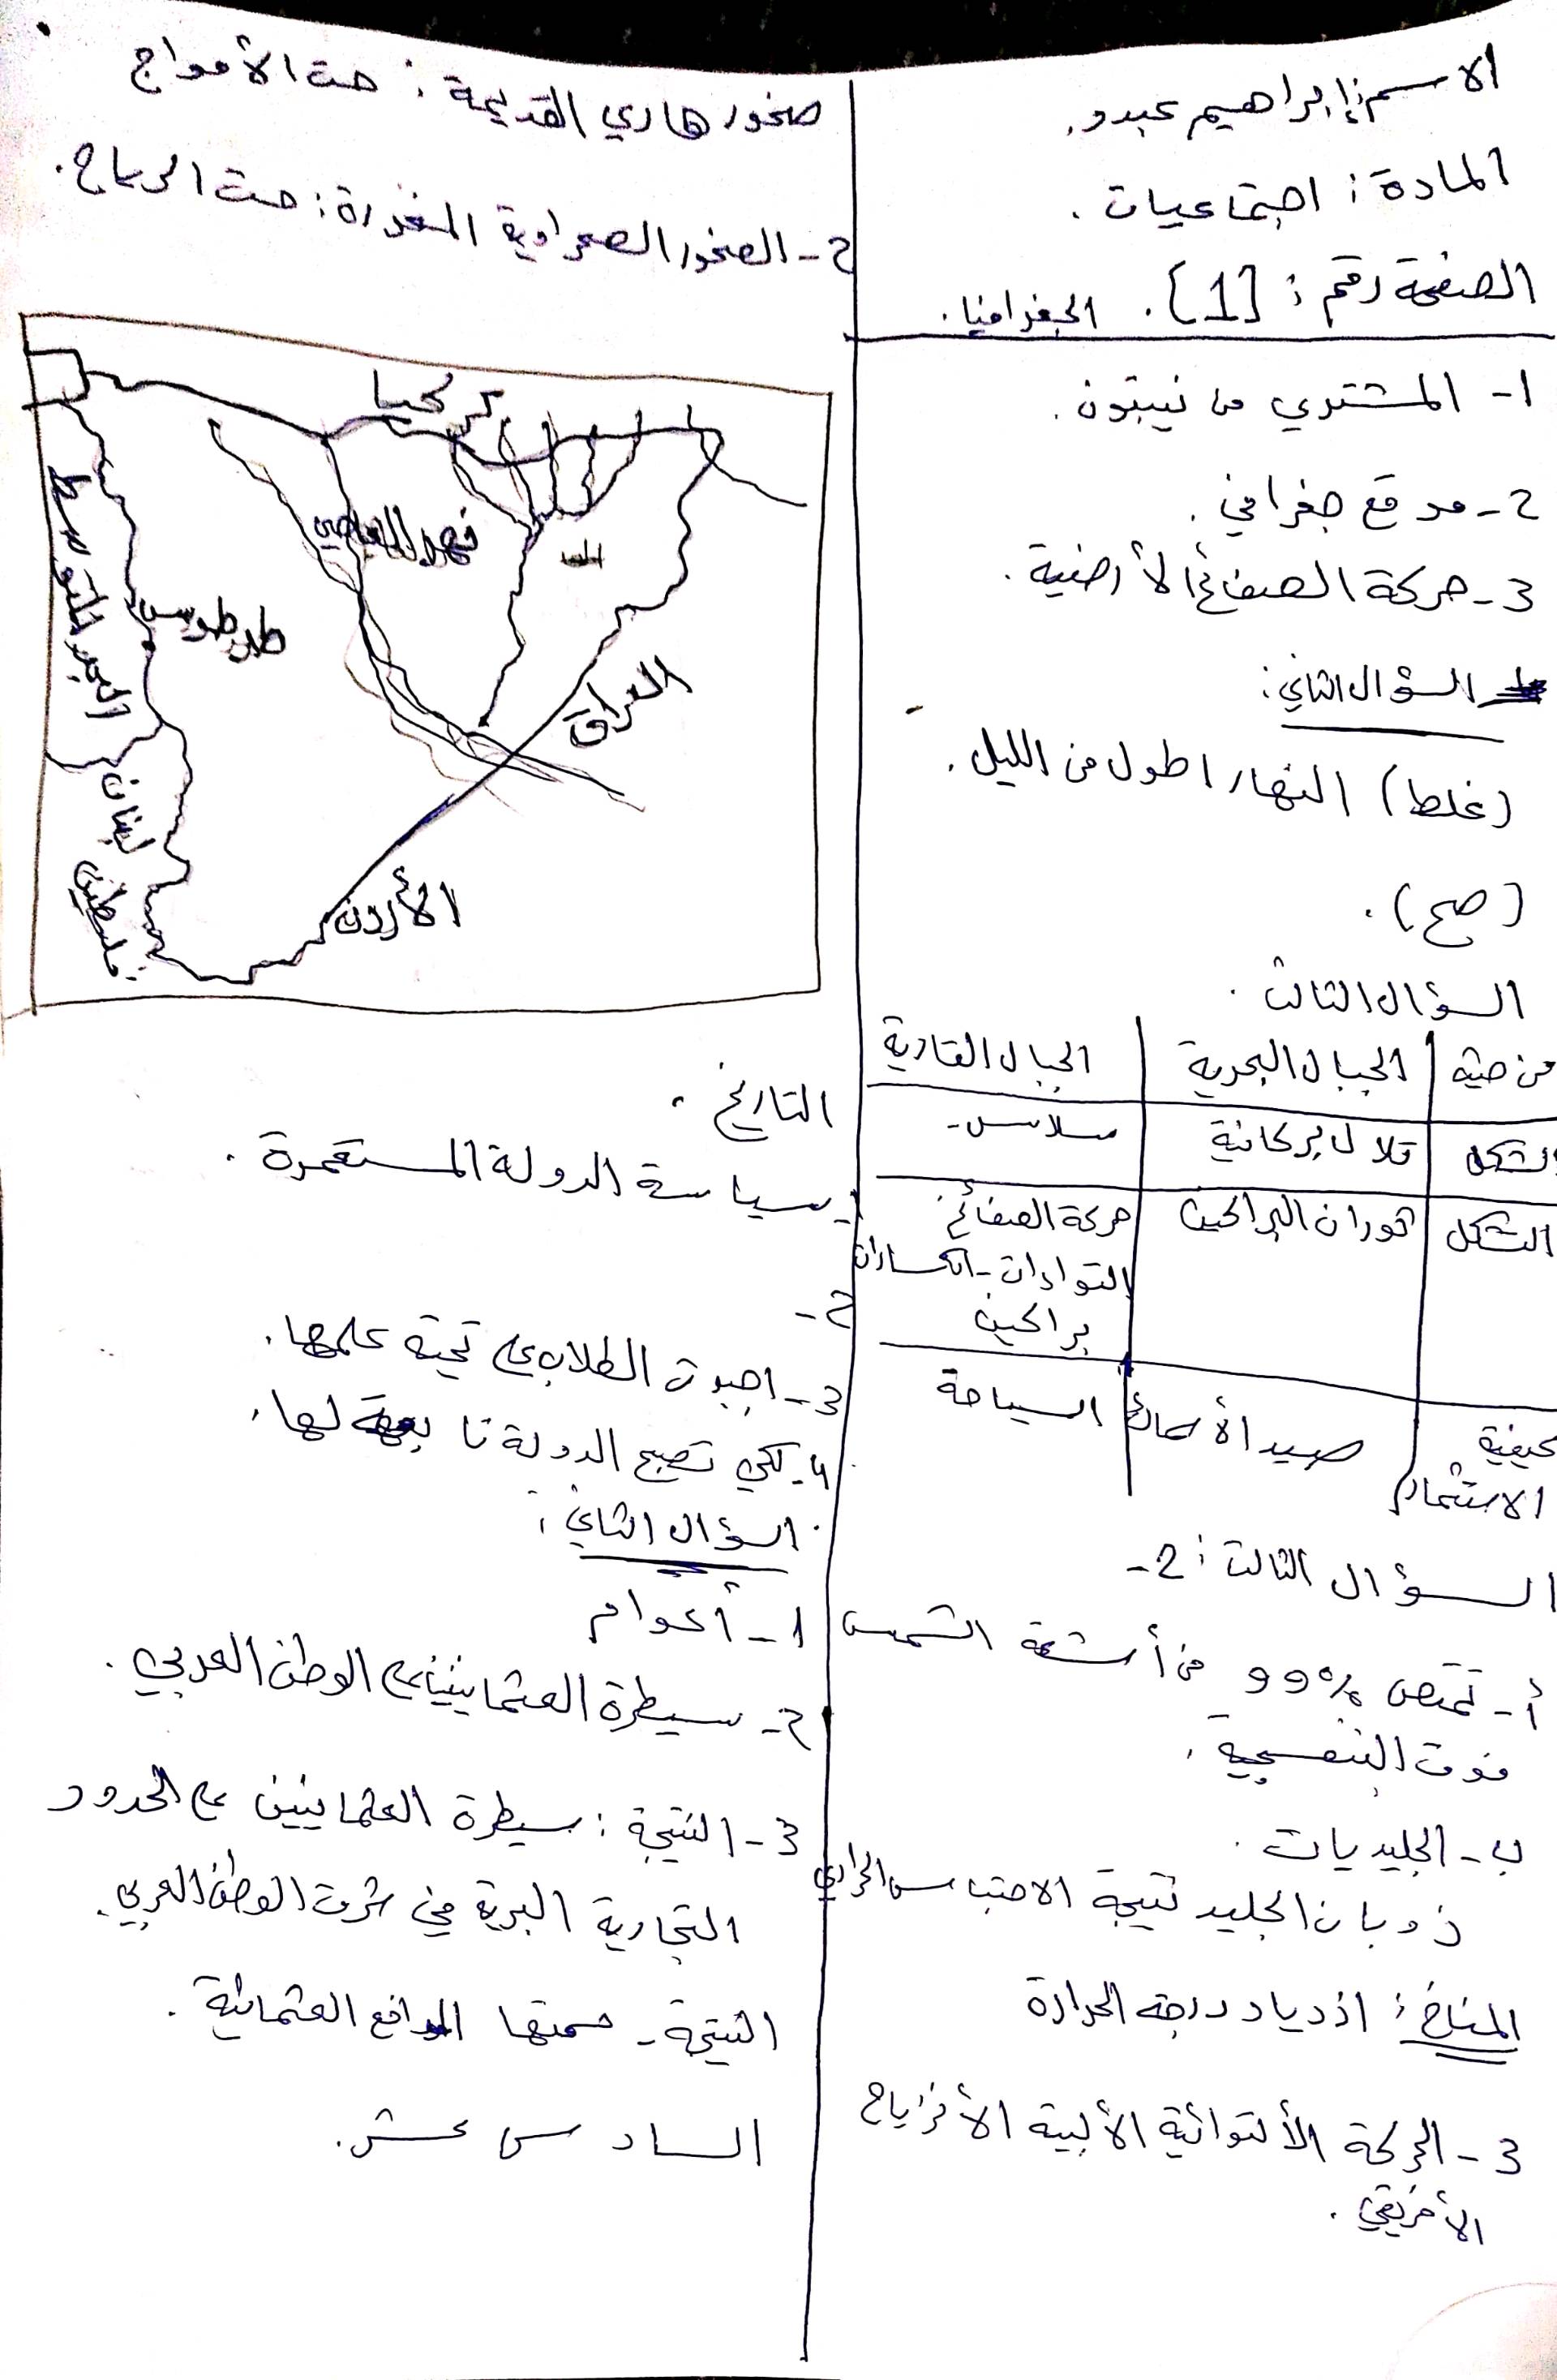 الاسم: إبراهيم عبدو.
المادة: اجتماعيات.
الصفحة رقم: [1]. الجغرافيا.
1- المشتري من نيبتون.
2- موقع جغرافي.
3- حركة الصفائح الأرضية.
السؤال الثاني:
(غلط) النهار اطول من الليل.
(صح).
السؤال الثالث.
من حيث | الجبال البحرية | الجبال القارية
الشكل | تلال بركانية | سلاسل-
الشكل | ثوران البراكين | حركة الصفائح
التواءات - انكسارات
براكين
كيفية | صيد الأسماك | السياحة
الاستثمار
السؤال الثالث: 2-
أ- تمتص 99% من أشعة الشمس
فوق البنفسجية.
ب- الجليديات.
ذوبان الجليد نتيجة الاحتباس الحراري
المناخ: ازدياد درجة الحرارة
3- الحركة الألتوائية الألبية الأنزياح
الأفريقي.
صخور هاري القديمة: حت الأمواج
2- الصخور الصحراوية المغورة: حت الرياح.
تركيا
نهر العاصي
البحر المتوسط
طرطوس
العراق
لبنان
فلسطين
الأردن
التاريخ.
1- سياسة الدولة المستعمرة.
2-
3- اجبرت الطلاب على تحية علمها.
4- لكي تصبح الدولة تابعة لها.
السؤال الثاني:
1- أعوام
2- سيطرة العثمانيين على الوطن العربي.
3- النتيجة: سيطرة العثمانيين على الحدود
التجارية البرية في شرق الوطن العربي.
النتيجة- حسمتها المدافع العثمانية.
السادس عشر.